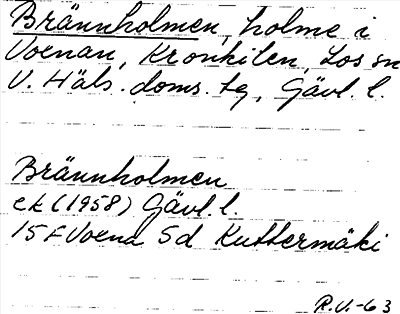 Brännholmen, holme i
Voenan, Kronkilen, Los sn
V. Häls. doms. tg, Gävl. l.
Brännholmen
ek (1958) Gävl. l.
15F Voena 5d Kuttermäki
R.U.-63